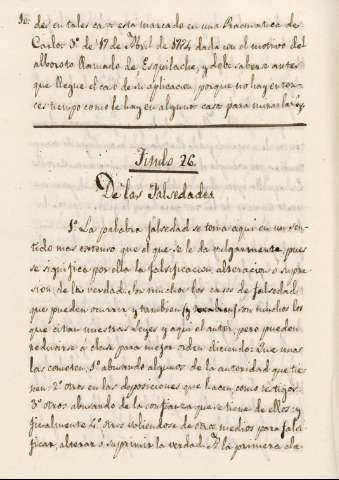 des en tales casos esta marcado en una Pracmatica de
Carlos 3º de 17 de Abril de 1774 dada con el motivo del
alboroto llamado de Esquilache, y debe saberse antes
que llegue el caso de su aplicacion, porque no hay enton-
ces tiempo como le hay en algunos casos para mirarla
Titulo 26
De las Falsedades
1º La palabra falsedad se toma aqui en un sen-
tido mas extenso que el que se le da vulgarmente, pues
se significa por ella la falsificacion, alteracion o supre-
sion de la verdad. Son muchos los casos de falsedad
que pueden ocurrir y tambien son muchos los
que citan nuestras Leyes y aqui el autor, pero pueden
reducirse a clase para mejor orden diciendo: Que unos
las cometen, 1º abusando algunos de la autoridad que tie-
nen, 2º otros en las deposiciones que hacen como testigos
3º otros abusando de la confianza que se tiene de ellos, y
finalmente 4º otros valiendose de otros medios para falsi-
ficar, alterar o suprimir la verdad. A la primera cla-